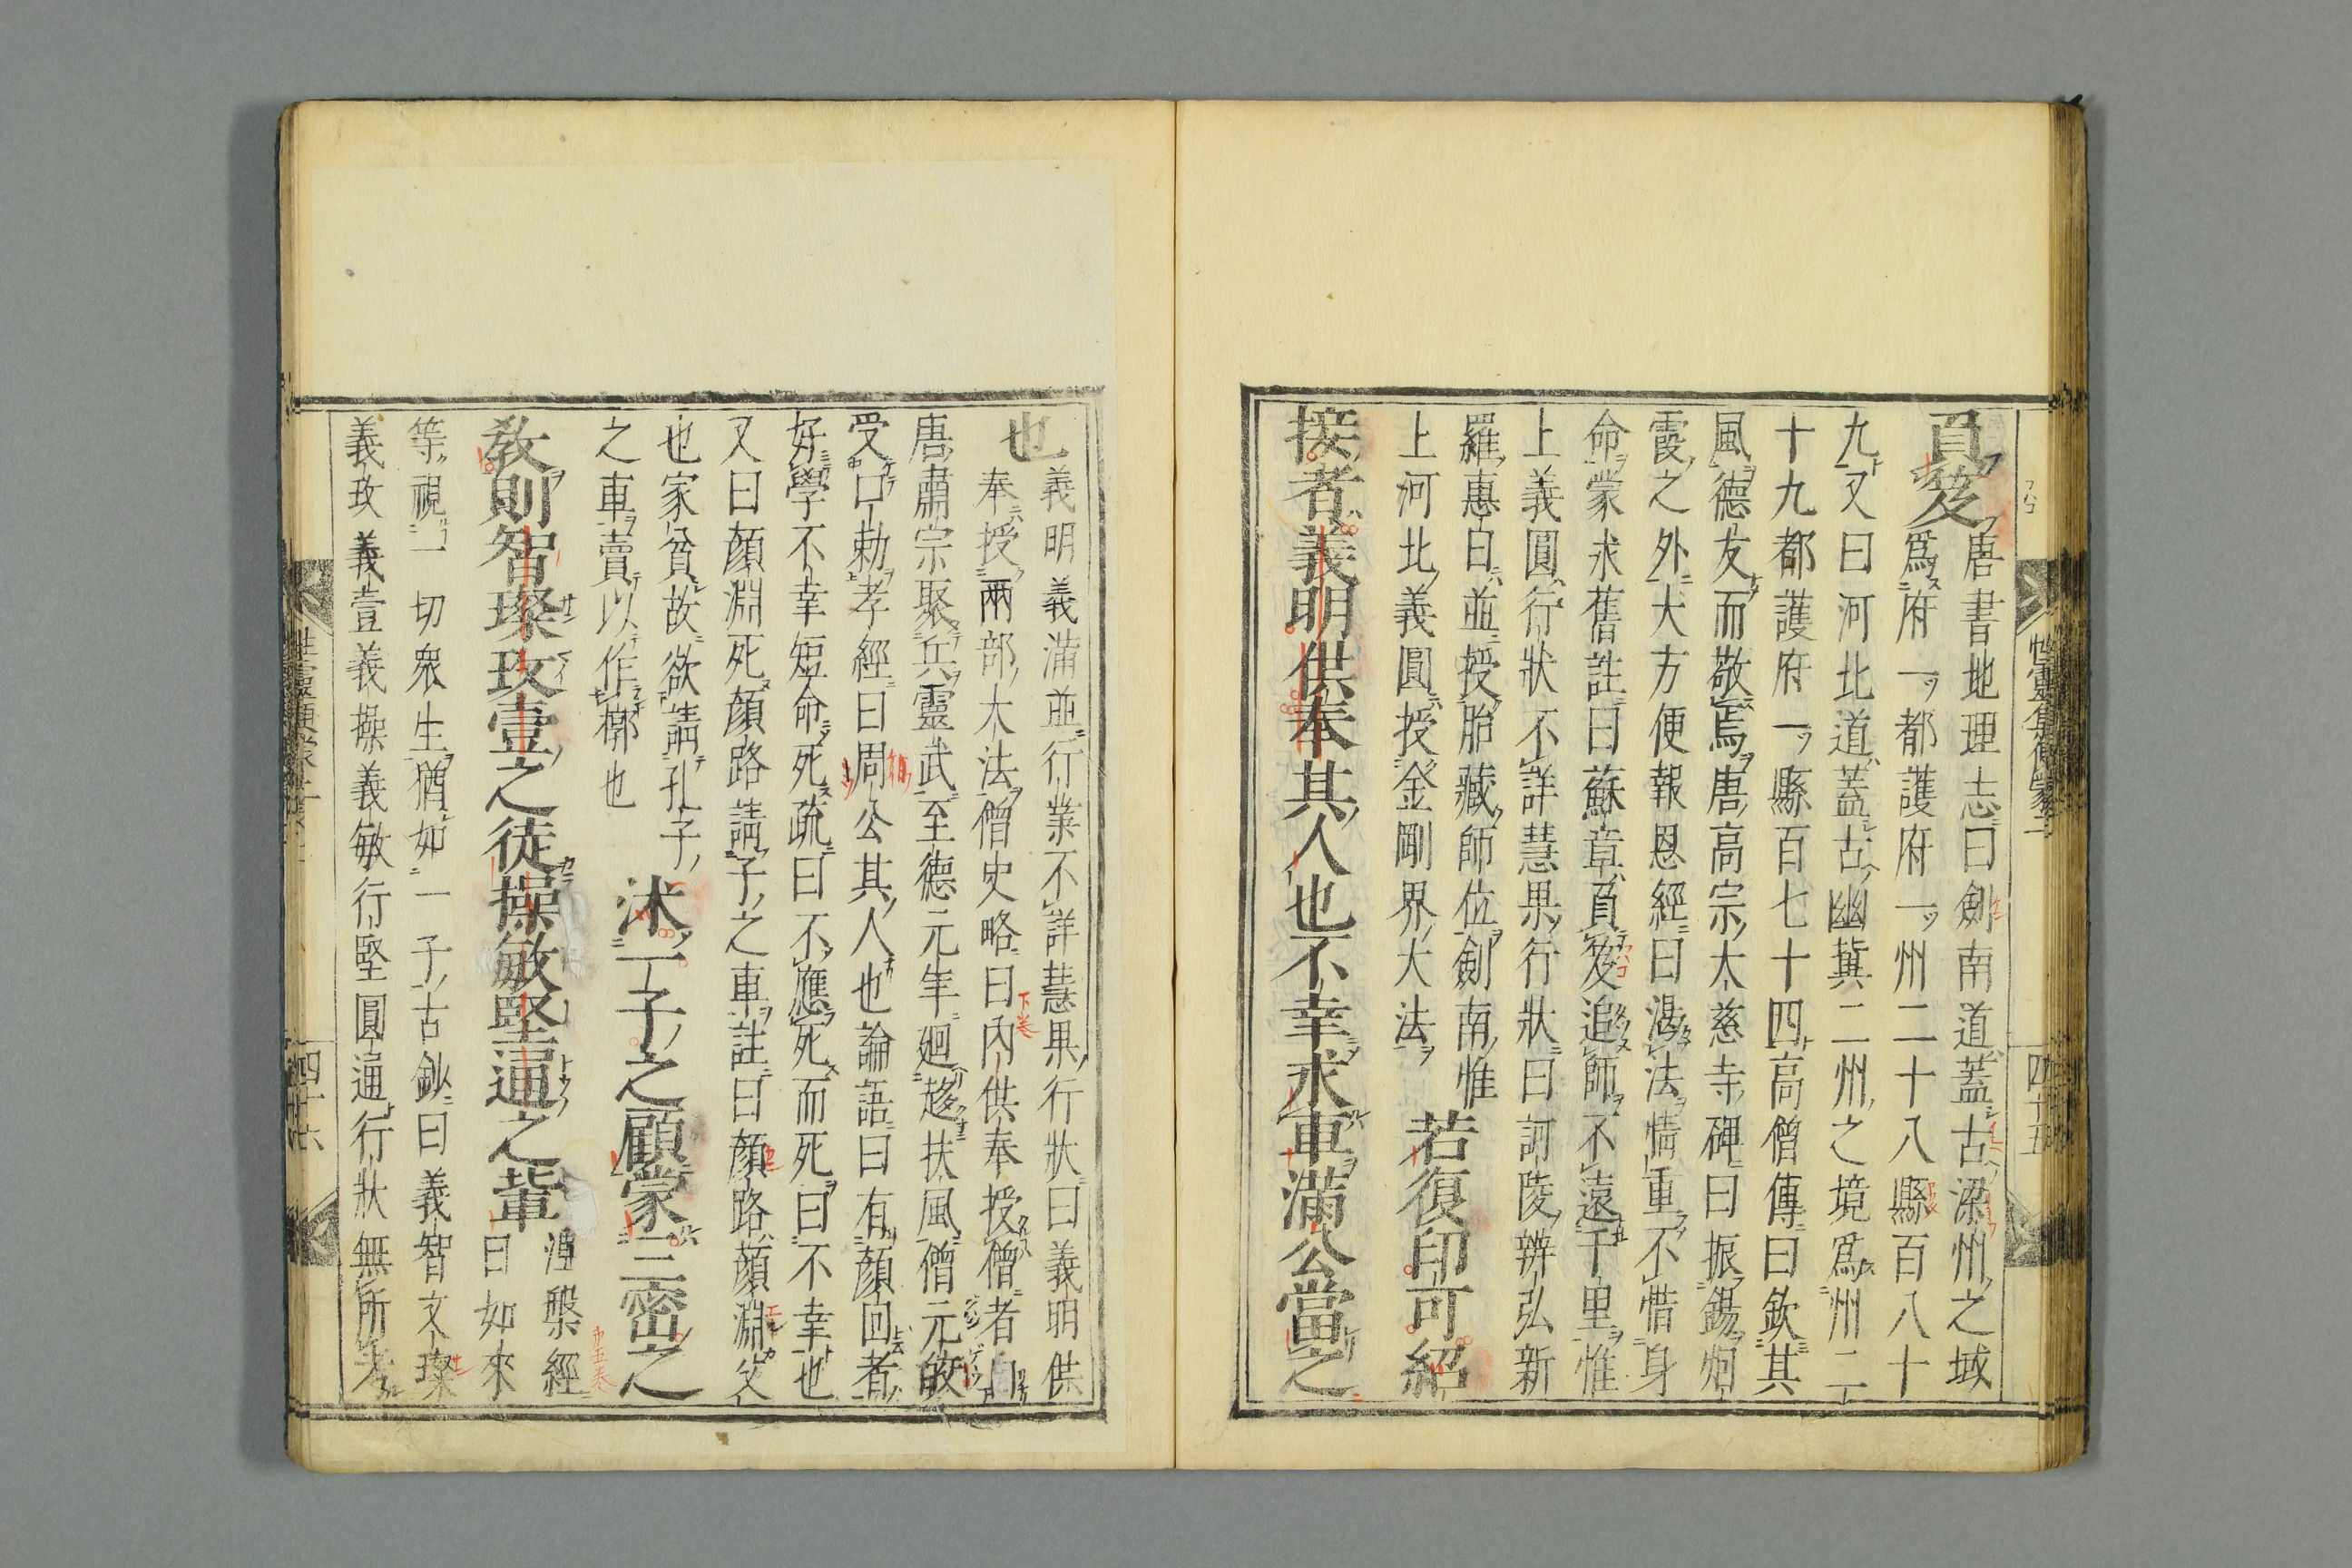 性靈集便蒙二
四十五
負笈
唐書地理志曰劍南道蓋古梁州之域
爲府一都護府一州二十八縣百八十
九又曰河北道蓋古幽冀二州之境爲州二
十九都護府一縣百七十四高僧傳曰欽其
風德友而敬焉唐高宗大慈寺碑曰振錫烟
霞之外大方便報恩經曰渴法情重不惜身
命蒙求舊註曰蘇章負笈追師不遠千里惟
上義圓行狀不詳慧果行狀曰訶陵辨弘新
羅惠日並授胎藏師位劍南惟
上河北義圓授金剛界大法
若復印可紹
接者義明供奉其人也不幸求車滿公當之
也
義明義滿並行業不詳慧果行狀曰義明供
奉授兩部大法僧史略曰內供奉授僧者自
唐肅宗聚兵靈武至德元年廻趍扶風僧元皎
受口勅孝經曰周公其人也論語曰有顏回者
好學不幸短命死疏曰不應死而死曰不幸也
又曰顏淵死顏路請子之車註曰顏路顏淵父
也家貧故欲請孔子
之車賣以作槨也
沐一子之顧蒙三密之
教則智璨玫壹之徒操敏堅通之輩
涅槃經
曰如來
等視一切衆生猶如一子古鈔曰義智文璨
義玫義壹義操義敏行堅圓通行狀無所考
四十六